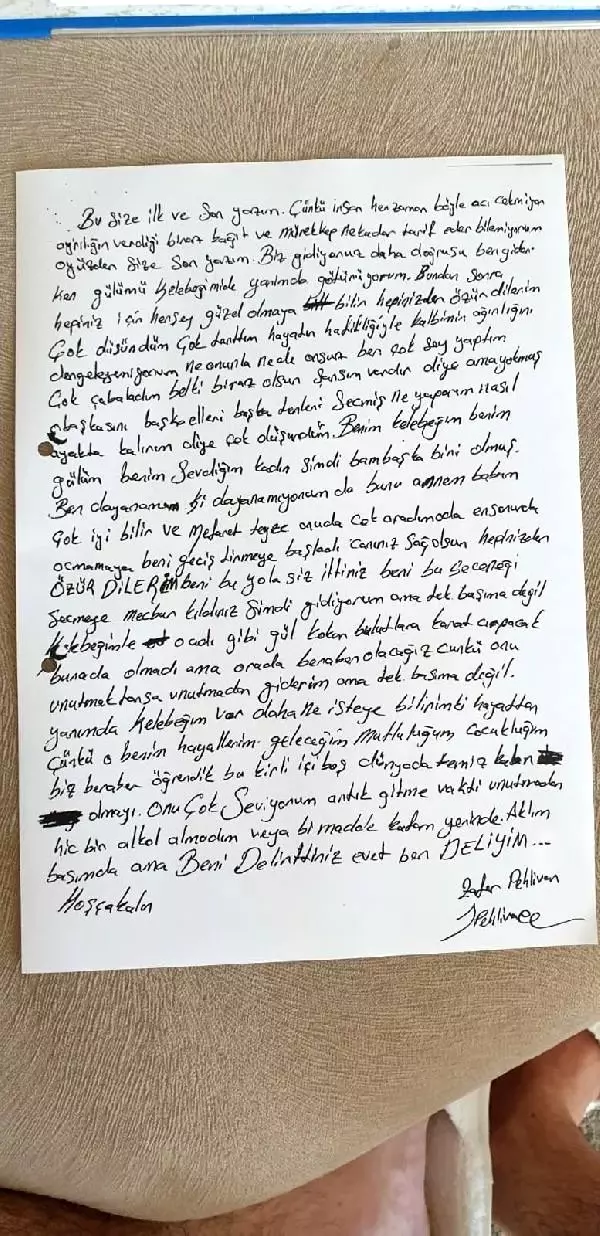 Bu size ilk ve son yazım. Çünkü insan herzaman böyle acı çekmiyor
ayrılığın verdiği biraz kağıt ve mürekkep nekadar tarif eder bilemiyorum
oyüzden size son yazım. Biz gidiyoruz daha doğrusu ben gider
ken gülümü kelebeğimide yanımda götürüyorum. Bundan sonra
hepiniz için herşey güzel olmaya bilir hepinizden özür dilerim
Çok düşündüm çok tarttım hayatın hafifliğiyle kalbimin ağırlığını
dengeleyemiyorum ne onunla nede onsuz ben çok şey yaptım
Çok çabaladım belki biraz olsun şansım vardır diye ama yokmuş
başkasını başka elleri başka tenleri seçmiş ne yaparım nasıl
ayakta kalırım diye çok düşündüm. Benim kelebeğim benim
gülüm benim Sevdiğim kadın şimdi bambaşka birii olmuş.
Ben dayanamam ki dayanamıyorum da bunu annem babam
Çok iyi bilir ve Metanet teyze onuda çok aradımda ensonunda
açmamaya beni geçiştirmeye başladı canınız sağolsun hepinizden
ÖZÜR DİLERİM beni bu yola siz ittiniz beni bu seçeneği
Seçmeye mecbur kıldınız Şimdi gidiyorum ama tek başıma değil
Kelebeğimle adı gibi gül kokan bulutlara kanat çırpacak
burada olmadı ama orada beraber olacağız çünkü onu
unutmaktansa unutmadan giderim ama tek başıma değil.
yanımda Kelebeğim var daha ne isteye bilirimki hayattan
Çünkü o benim hayallerim geleceğim mutluluğum çocukluğum
biz beraber öğrendik bu kirli içi boş dünyada temiz kalan
olmayı. Onu Çok Seviyorum artık gitme vakti unutmadan
hiç bir alkol almadım veya bi madde kafam yerinde. Aklım
başımda ama Beni Delirttiniz evet ben DELİYİM...
Hoşçakalın
Pehlivan